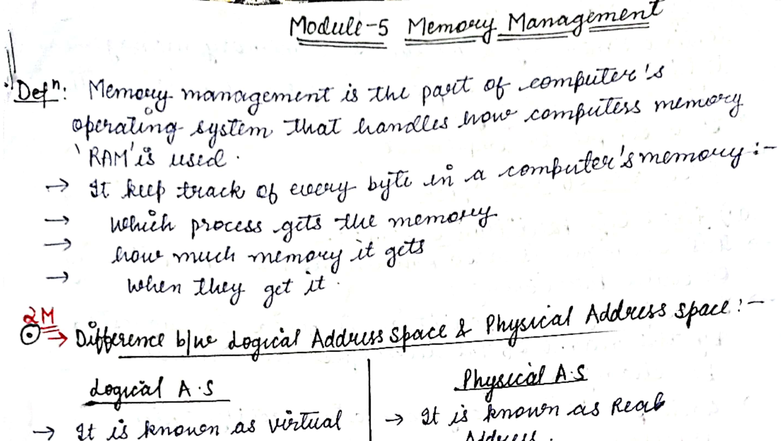 Module-5 Memory Management
Defⁿ: Memory management is the part of computer's
operating system that handles how computess memory
'RAM' is used.
→ It keep track of every byte in a computer's memory:-
→ which process gets the memory
→ how much memory it gets
→ when they get it.
2M
→ Difference b/w Logical Address Space & Physical Address space:-
Logical A.S
Physical A.S
→ It is known as virtual
→ It is known as Real
Address.